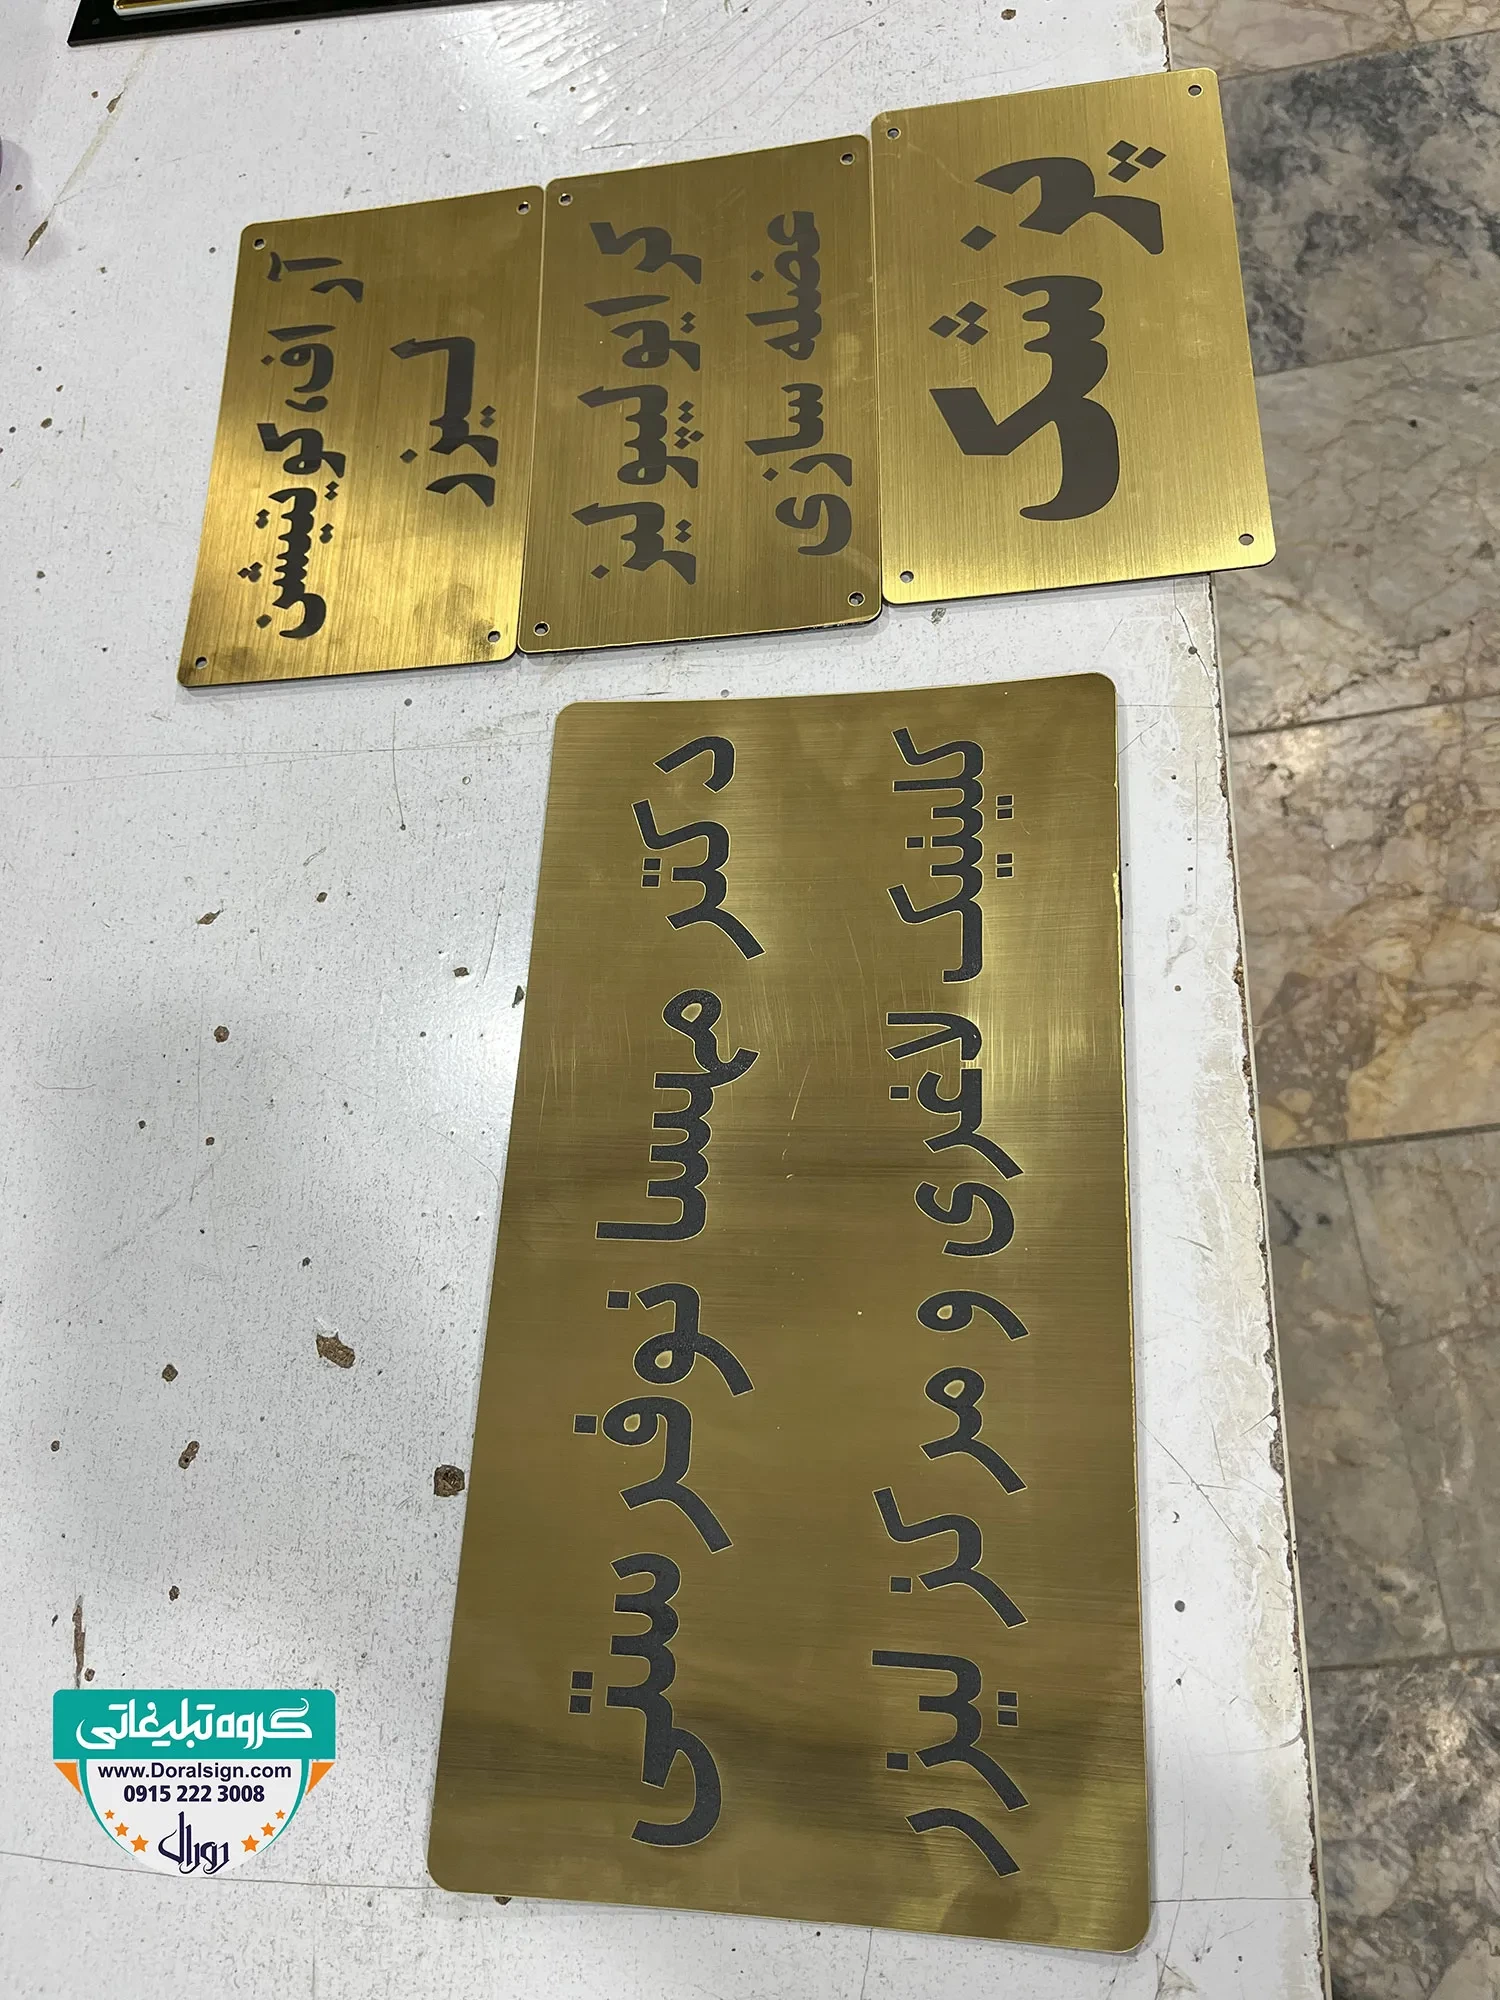 آر اف، کویتیشن
لیزر
کرایولیپولیز
عضله سازی
پزشک
دکتر مهسا نوفرستی
کلینیک لاغری و مرکز لیزر
گروه تبلیغاتی
www.Doralsign.com
0915 222 3008
دورال